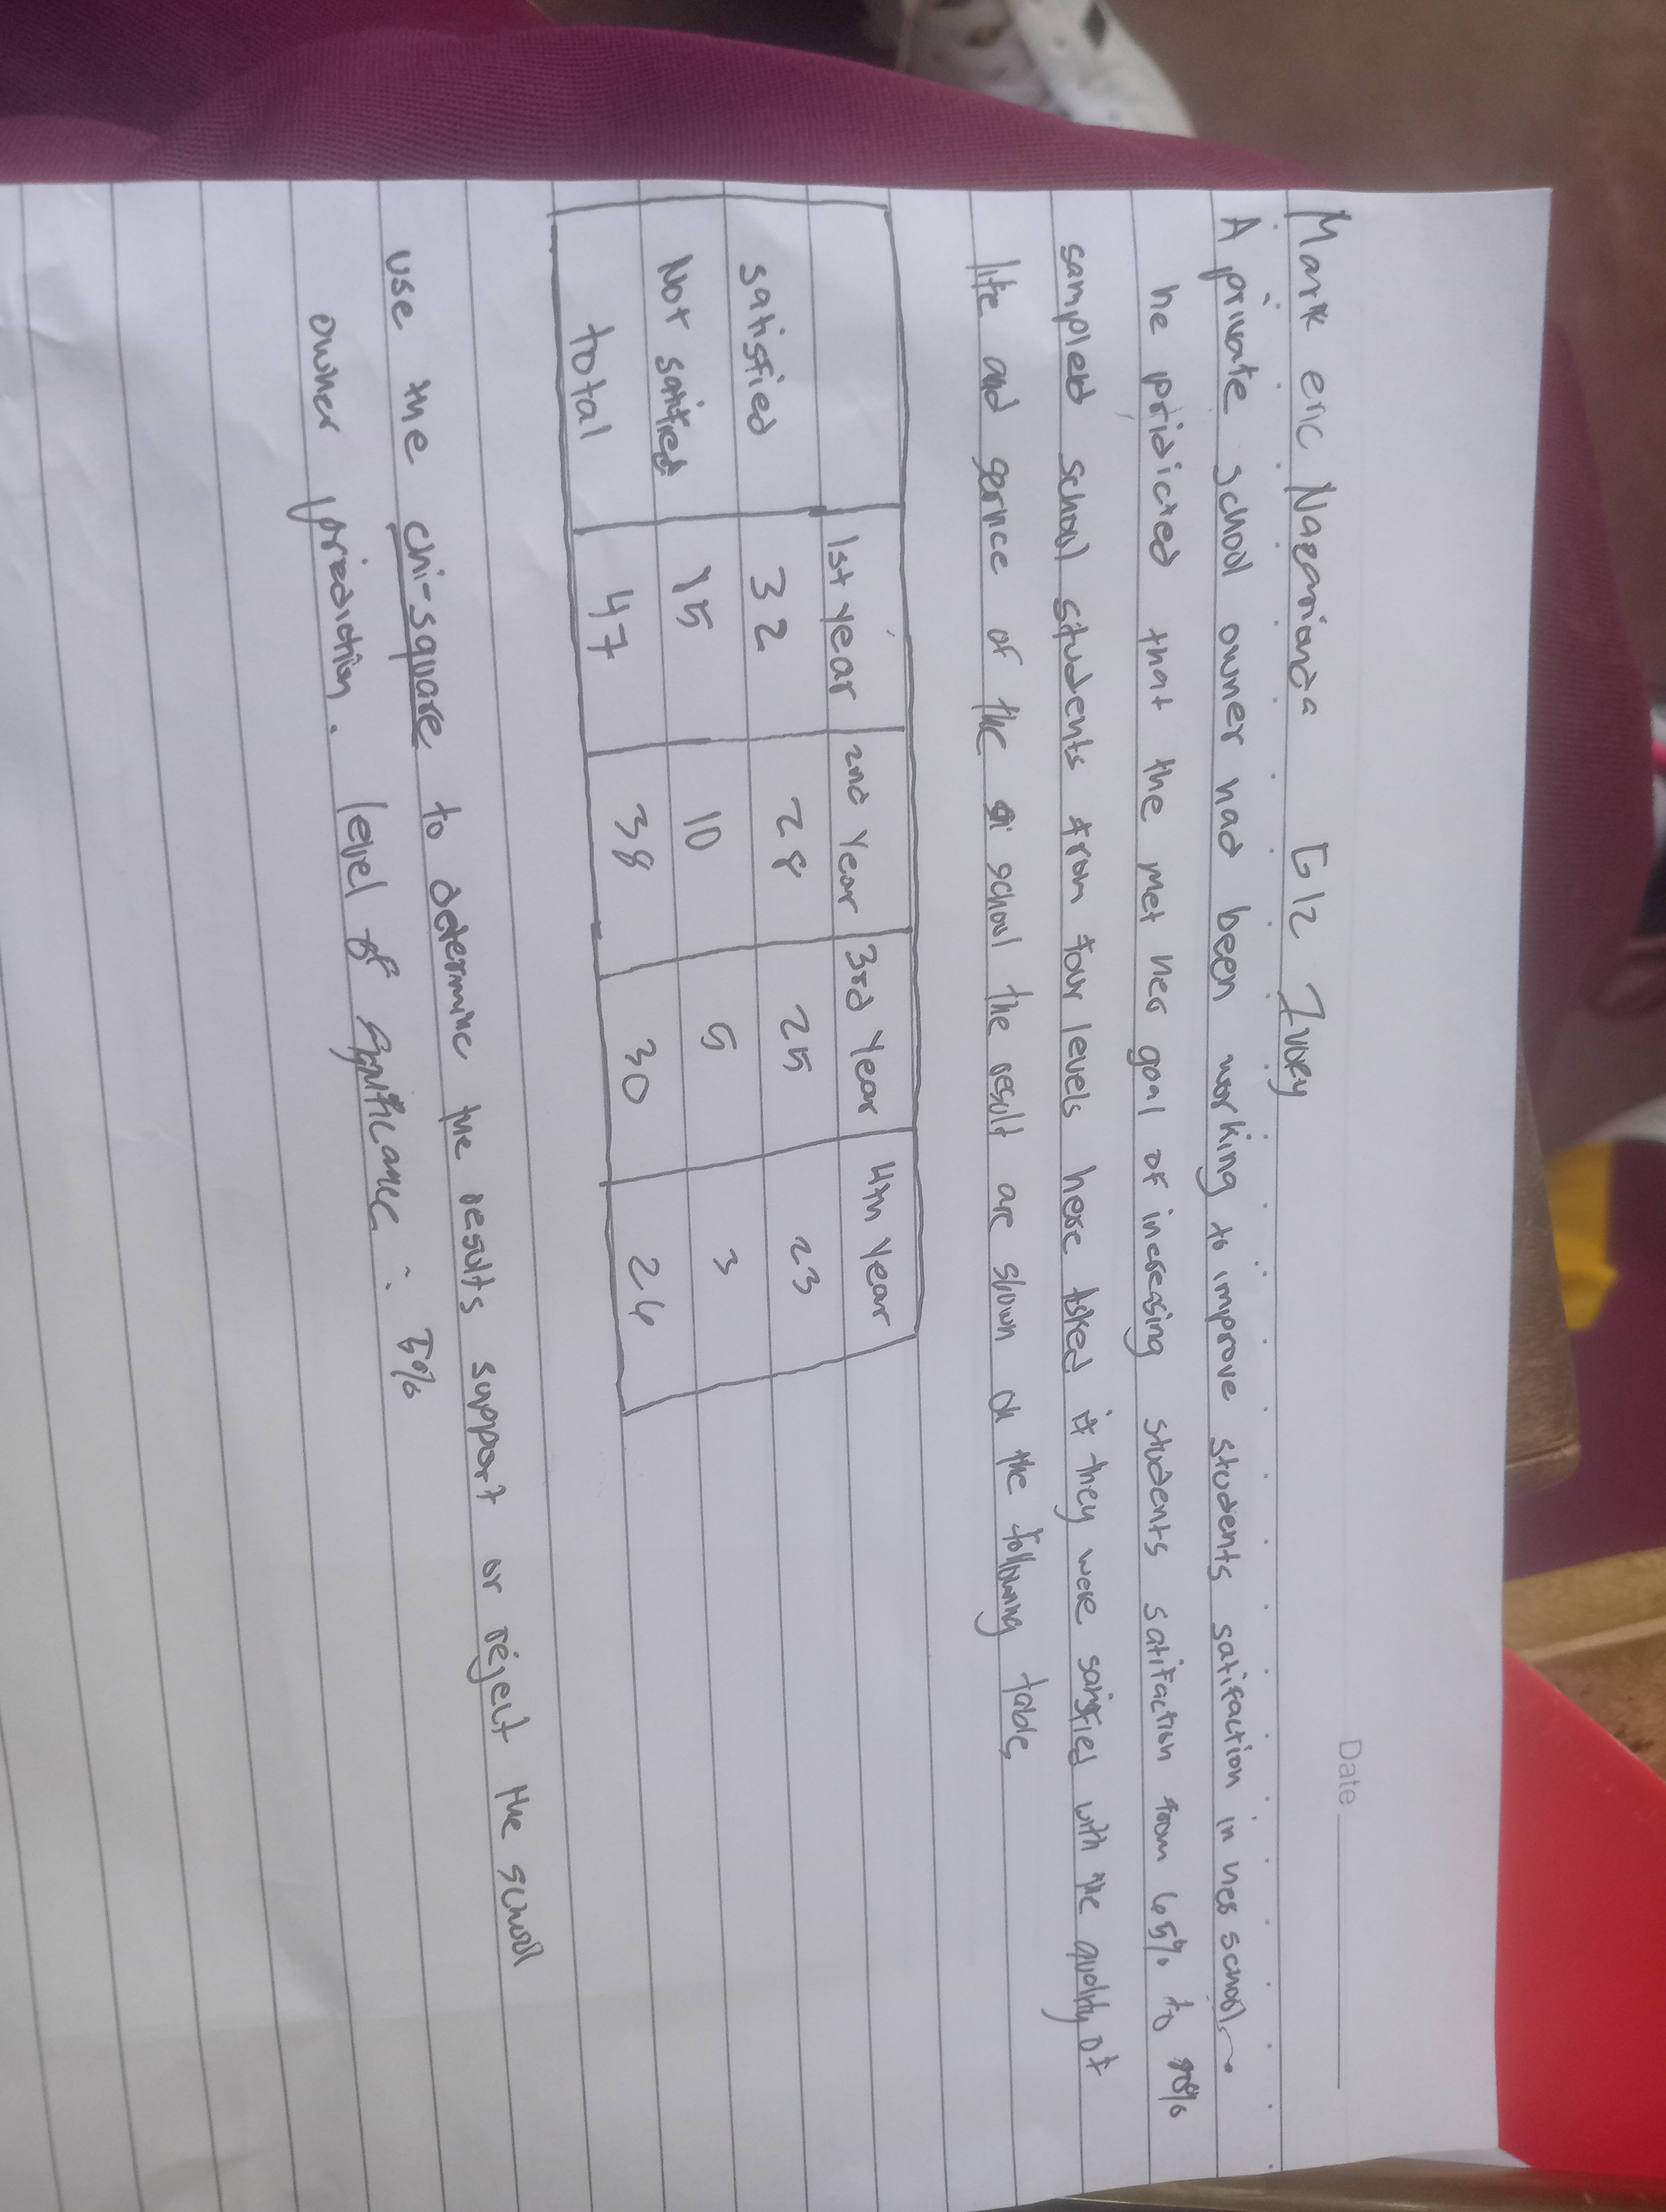 Date
Mark eric Nazarionda G12 Ivory
A private school owner had been working to improve students satifaction in her school.
he pridicted that the met her goal of increasing students satifaction from 65% to
sampled school situdents from four levels here asked if they were sarisfied with the quality of
life and service of the school the result are shown on the following table,
1st Year 2nd Year 3rd Year 4th Year
satisfied 32 28 25 23
Not satified 15 10 5 3
total 47 38 30 26
use the chi-square to determine the results support or reject the school
owner pridiction. level of significance : 5%